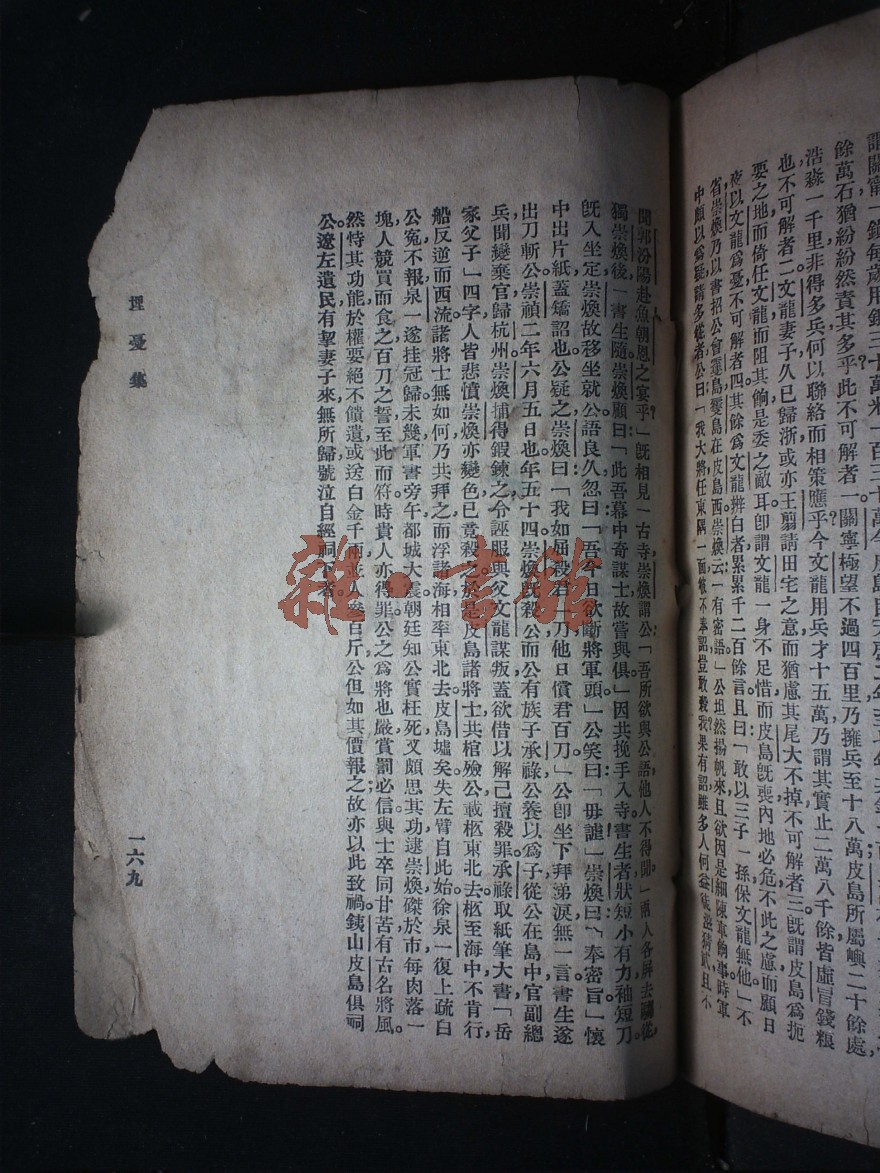 餘萬石猶紛紛然責其多乎此不可解者一關寧極望不過四百里乃擁兵至十八萬皮島所屬嶼二十餘處,
浩淼一千里非得多兵何以聯絡而相策應乎今文龍用兵才十五萬乃謂其實止二萬八千餘皆虛冒錢糧
也不可解者二文龍妻子久已歸浙或亦王翦請田宅之意而猶慮其尾大不掉不可解者三既謂皮島為扼
要之地而倚任文龍而阻其餉是委之敵耳即謂文龍一身不足惜而皮島既喪內地必危不此之慮而顧日
夜以文龍為憂不可解者四其餘為文龍辨白者累累千二百餘言且曰「敢以三子一孫保文龍無他」不
省崇煥乃以書招公會雙島雙島在皮島西崇煥云:「有密語」公坦然揚帆來且欲因是細陳軍餉事時軍
中頗以為疑請多從者公曰:「我大將任東隅一面彼不奉詔豈敢殺我果有詔雖多人何益徒滋猜貳且不
聞郭汾陽赴魚朝恩之宴乎?」既相見一古寺崇煥謂公「吾所欲與公語他人不得聞」兩人各屏去騶從,
獨崇煥後一書生隨崇煥顧曰:「此吾幕中奇謀士故嘗與俱」因共挽手入寺書生者狀短小有力袖短刀
既入坐定崇煥故移坐就公語良久忽曰「吾今日欲斷將軍頭」公笑曰:「毋謔」崇煥曰:「奉密旨」懷
中出片紙蓋矯詔也公疑之崇煥曰:「我如屈殺君一刀他日償君百刀」公即坐下拜弟淚無一言書生遂
出刀斬公崇禎二年六月五日也年五十四崇煥既殺公而公有族子承祿公養以為子從公在島中官副總
兵聞變棄官歸杭州崇煥捕得鍛鍊之令誣服與父文龍謀叛蓋欲借以解己擅殺罪承祿取紙筆大書「岳
家父子」四字人皆悲憤崇煥亦變色已竟殺之於是皮島諸將士共棺殮公載柩東北去柩至海中不肯行,
船反逆而西流諸將士無如何乃共拜之而浮諸海相率東北去皮島墟矣失左臂自此始徐泉一復上疏白
公冤不報泉一遂挂冠歸未幾軍書旁午都城大震朝廷知公實枉死又頗思其功逮崇煥磔於市每肉落一
塊人競買而食之百刀之誓至此而符時貴人亦得罪公之為將也嚴賞罰必信與士卒同甘苦有古名將風。
然恃其功能於權要絕不饋遺或送白金千兩並人參百斤公但如其價報之故亦以此致禍鐵山皮島俱祠
公遼左遺民有挈妻子來無所歸號泣自經祠下者。
埋憂集
一六九
雜·書館